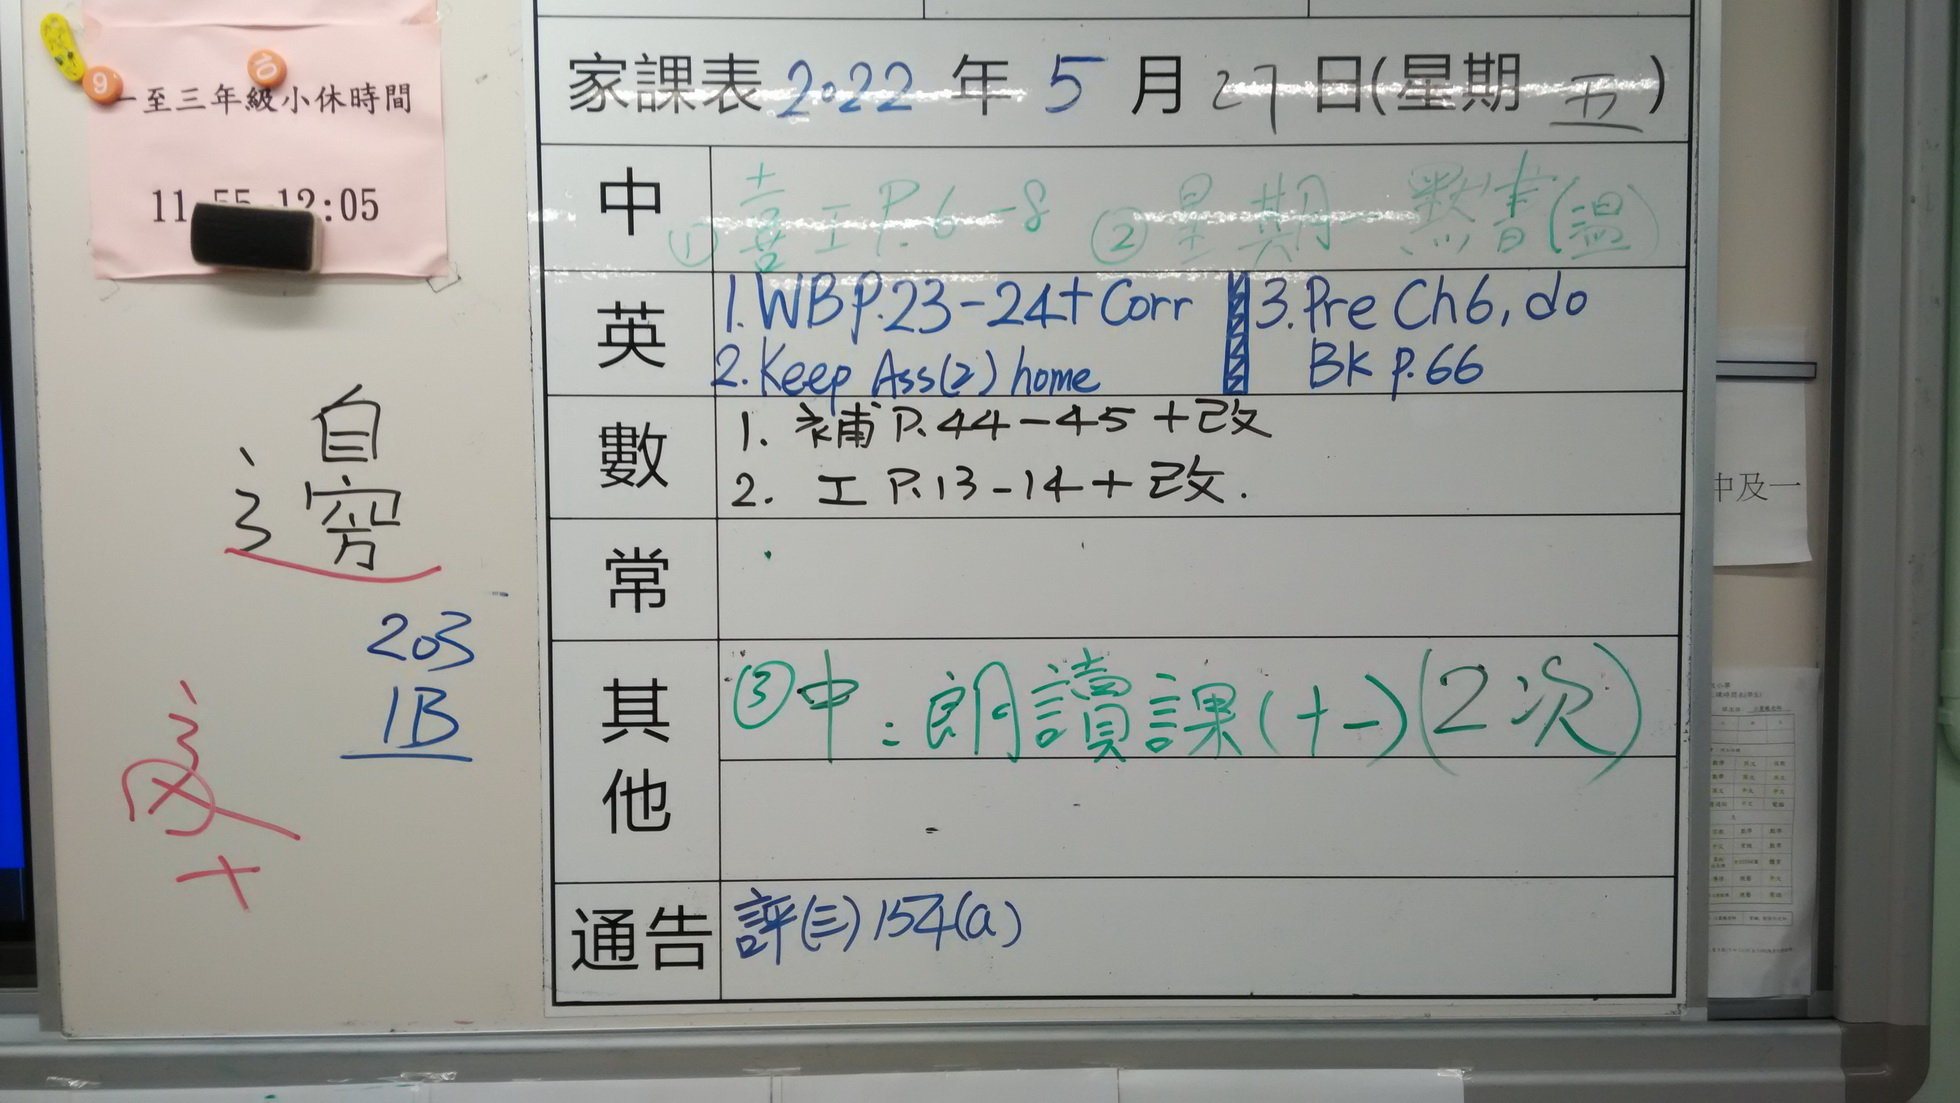 一至三年級小休時間
11:55-12:05
家課表2022年5月27日(星期五)
中
①喜工P.6-8 ②星期一默書(溫)
英
1.WB p.23-24+Corr
2.Keep Ass(2) home
3.Pre Ch6, do
Bk p.66
數
1. 補P.44-45+改
2. 工P.13-14+改.
常
其他
③中:朗讀課(十一)(2次)
通告
評(三)154(a)
自
203
1B
中及一